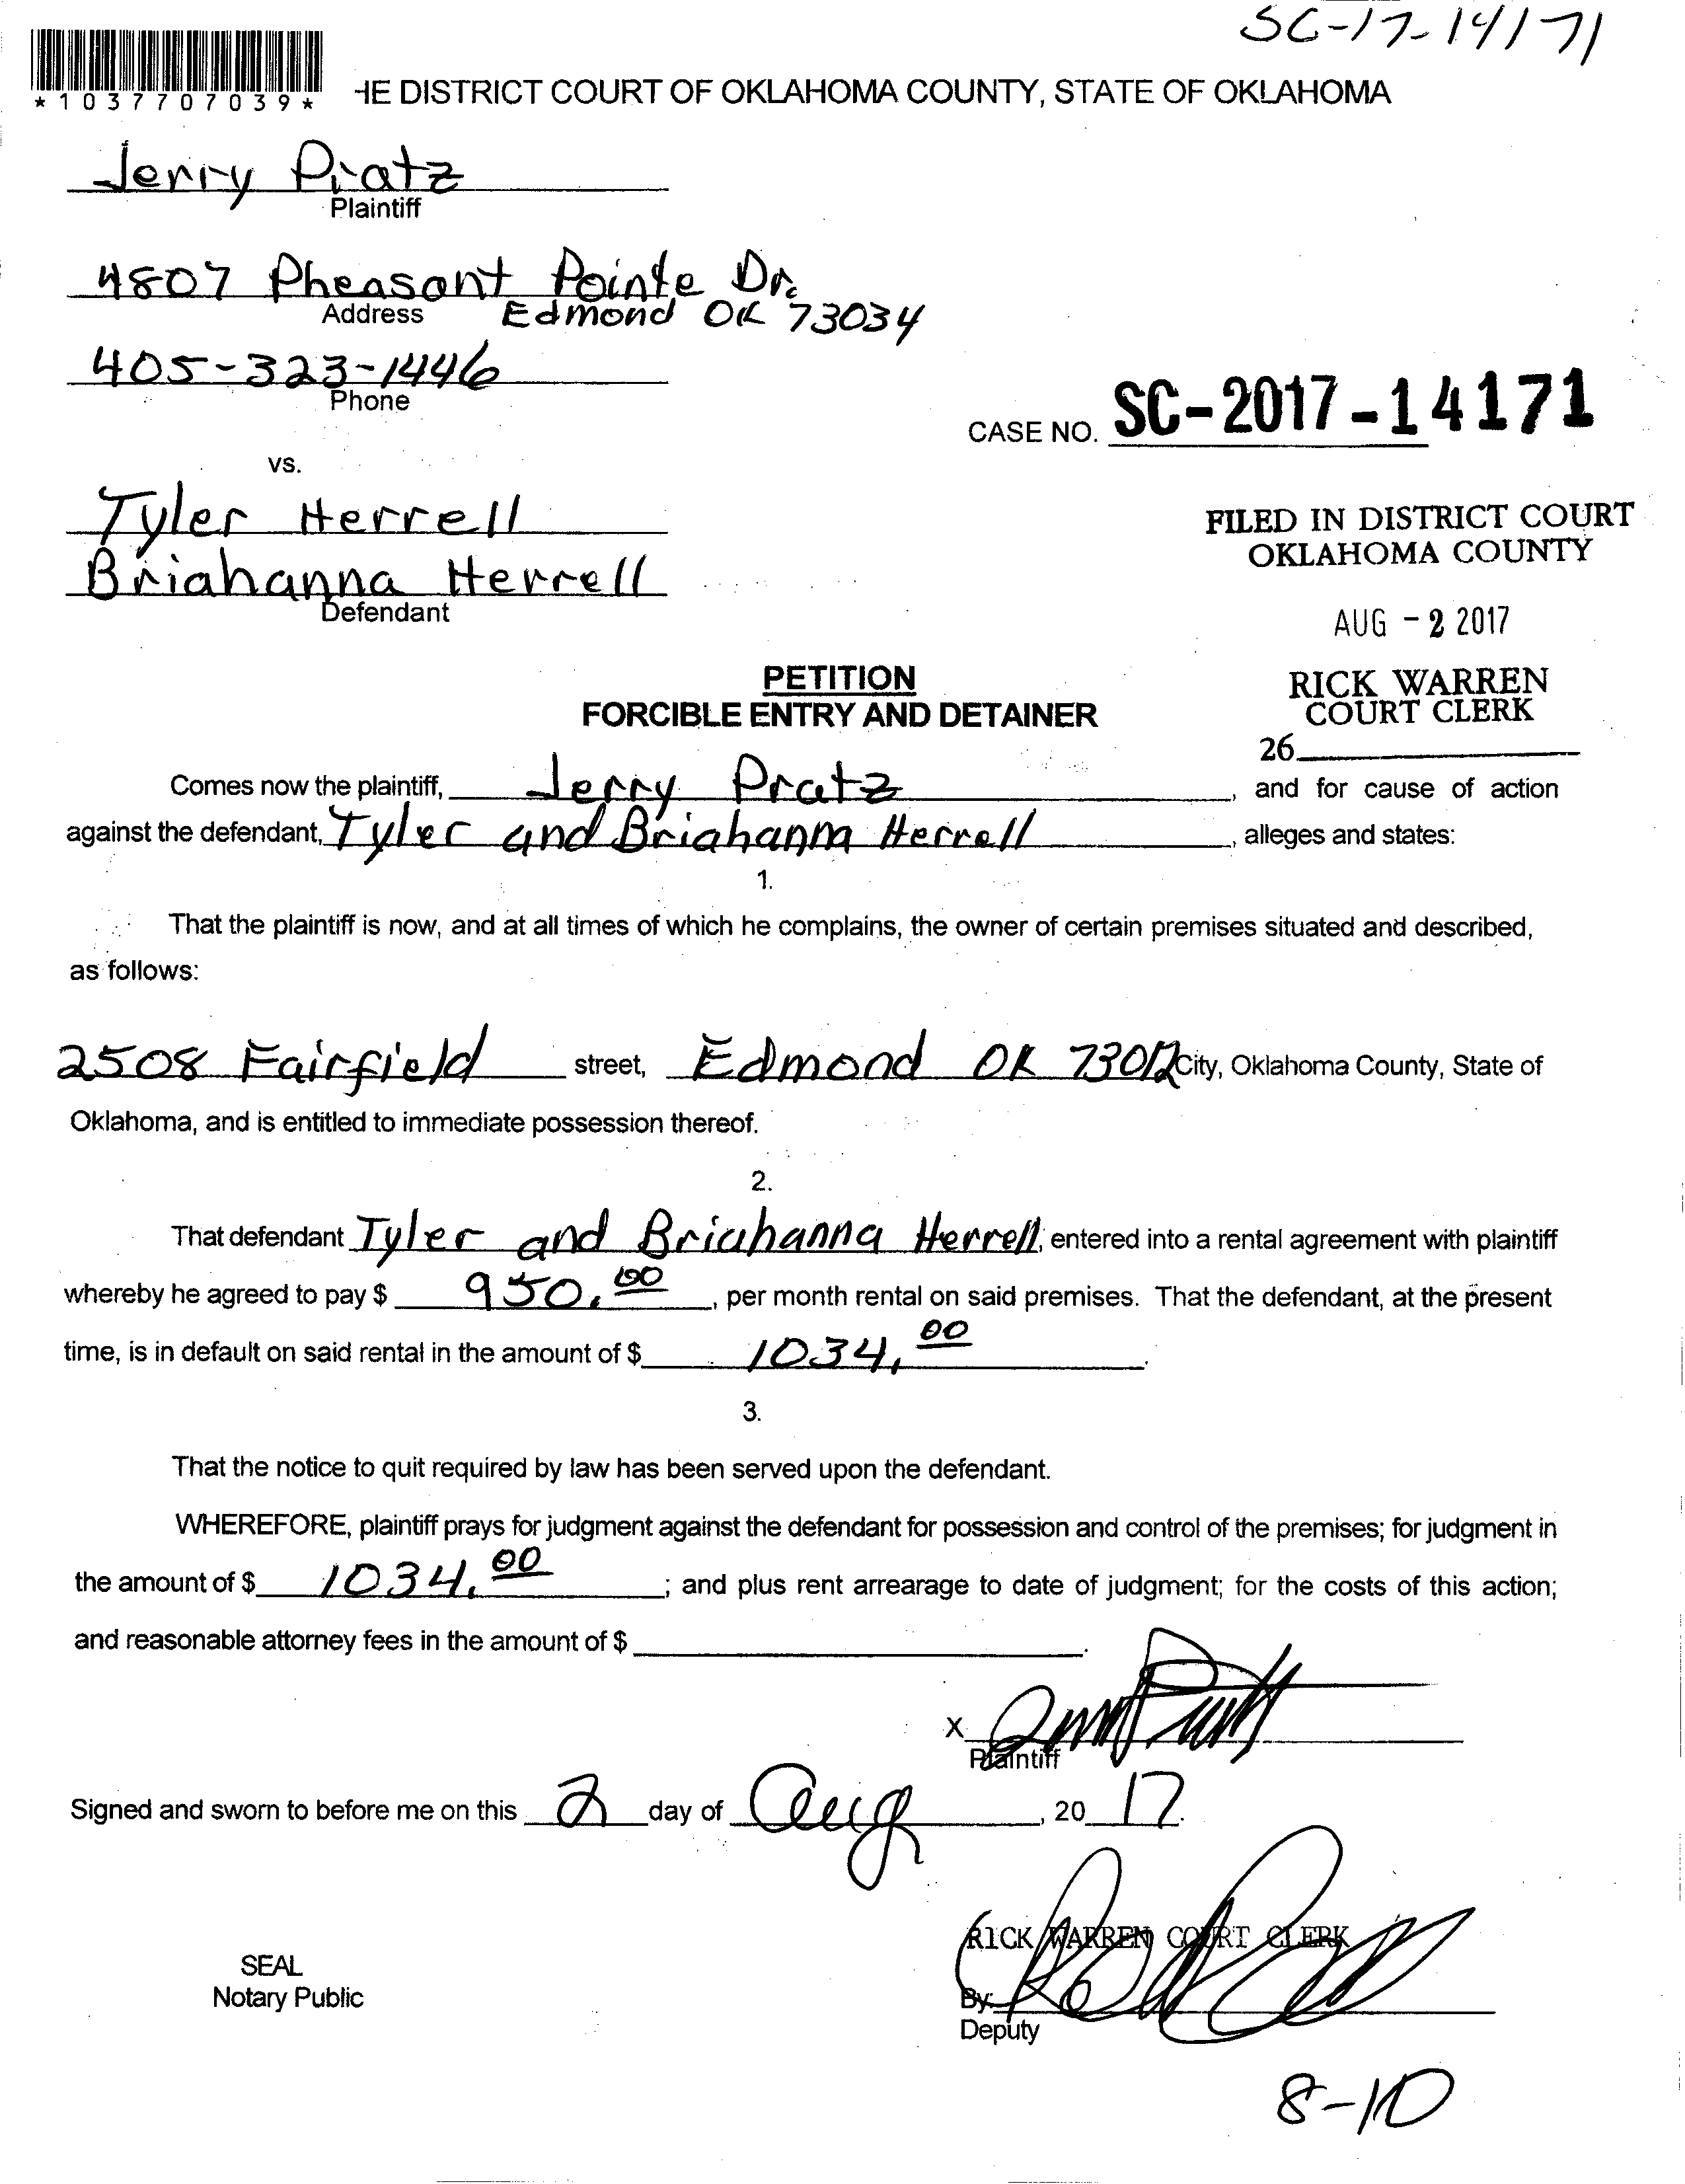 SC-17-14171
*1037707039*
HE DISTRICT COURT OF OKLAHOMA COUNTY, STATE OF OKLAHOMA
Jerry Pratz
Plaintiff
4807 Pheasant Pointe Dr.
Address Edmond OK 73034
405-323-1446
Phone
CASE NO. SC-2017-14171
vs.
Tyler Herrell
Briahanna Herrell
Defendant
FILED IN DISTRICT COURT
OKLAHOMA COUNTY
AUG - 2 2017
RICK WARREN
COURT CLERK
26
PETITION
FORCIBLE ENTRY AND DETAINER
Comes now the plaintiff, Jerry Pratz, and for cause of action
against the defendant, Tyler and Briahanna Herrell, alleges and states:
1.
That the plaintiff is now, and at all times of which he complains, the owner of certain premises situated and described,
as follows:
2508 Fairfield street, Edmond OK 73012 City, Oklahoma County, State of
Oklahoma, and is entitled to immediate possession thereof.
2.
That defendant Tyler and Briahanna Herrell, entered into a rental agreement with plaintiff
whereby he agreed to pay $ 950.00, per month rental on said premises. That the defendant, at the present
time, is in default on said rental in the amount of $ 1034.00.
3.
That the notice to quit required by law has been served upon the defendant.
WHEREFORE, plaintiff prays for judgment against the defendant for possession and control of the premises; for judgment in
the amount of $ 1034.00; and plus rent arrearage to date of judgment; for the costs of this action;
and reasonable attorney fees in the amount of $.
X
Plaintiff
Signed and sworn to before me on this 2 day of Aug, 2017.
RICK WARREN COURT CLERK
SEAL
Notary Public
By:
Deputy
8-10